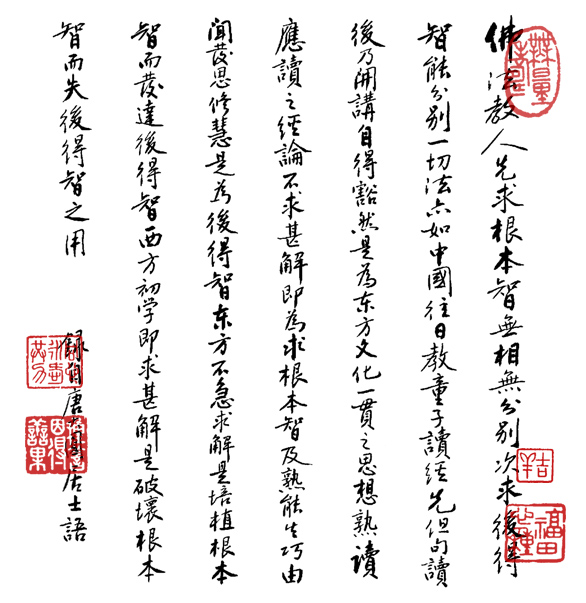 佛法教人先求根本智無相無分別次求後得
智能分別一切法亦如中國往日教童子讀經先但句讀
後乃開講自得豁然是為东方文化一貫之思想熟讀
應讀之经論不求甚解即為求根本智及熟能生巧由
聞發思修慧是為後得智东方不急求解是培植根本
智而發達後得智西方初学即求甚解是破壞根本
智而失後得智之用
錄自唐大圓居士語
吉羊